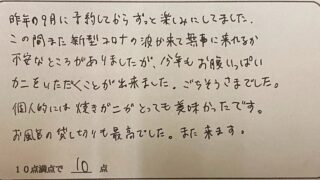 昨年の9月に予約してからずっと楽しみにしてました。
この間また新型コロナの波が来て無事に来れるか
不安なところがありましたが、今年もお腹いっぱい
カニをいただくことが出来ました。ごちそうさまでした。
個人的には焼きガニがとっても美味かったです。
お風呂の貸し切りも最高でした。また来ます。
10点満点で 10 点